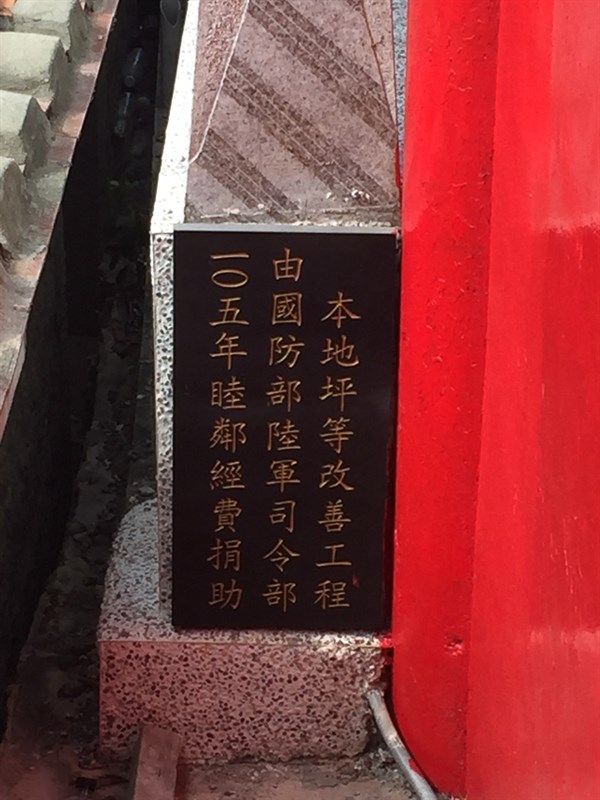 本地坪等改善工程
由國防部陸軍司令部
一〇五年睦鄰經費捐助